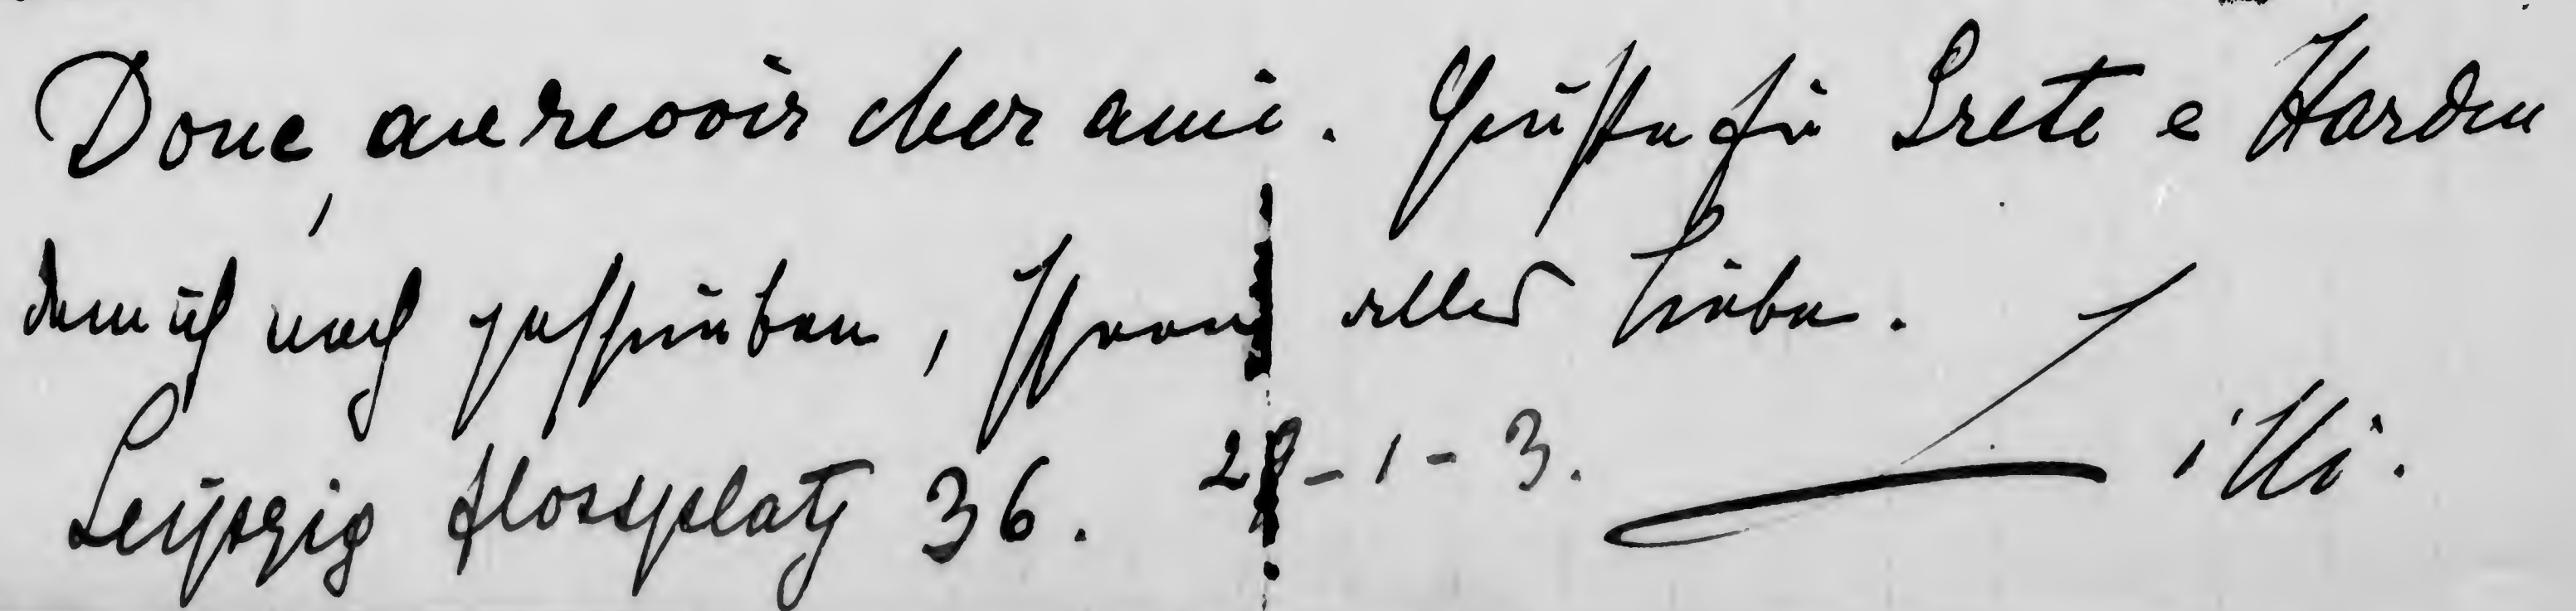 Donc, au revoir cher ami. Grüße für Grete e Harden
dem ich noch geschrieben, Ihnen alles Liebe.
Leipzig Flossplatz 36. 28-1-3. Lilli.